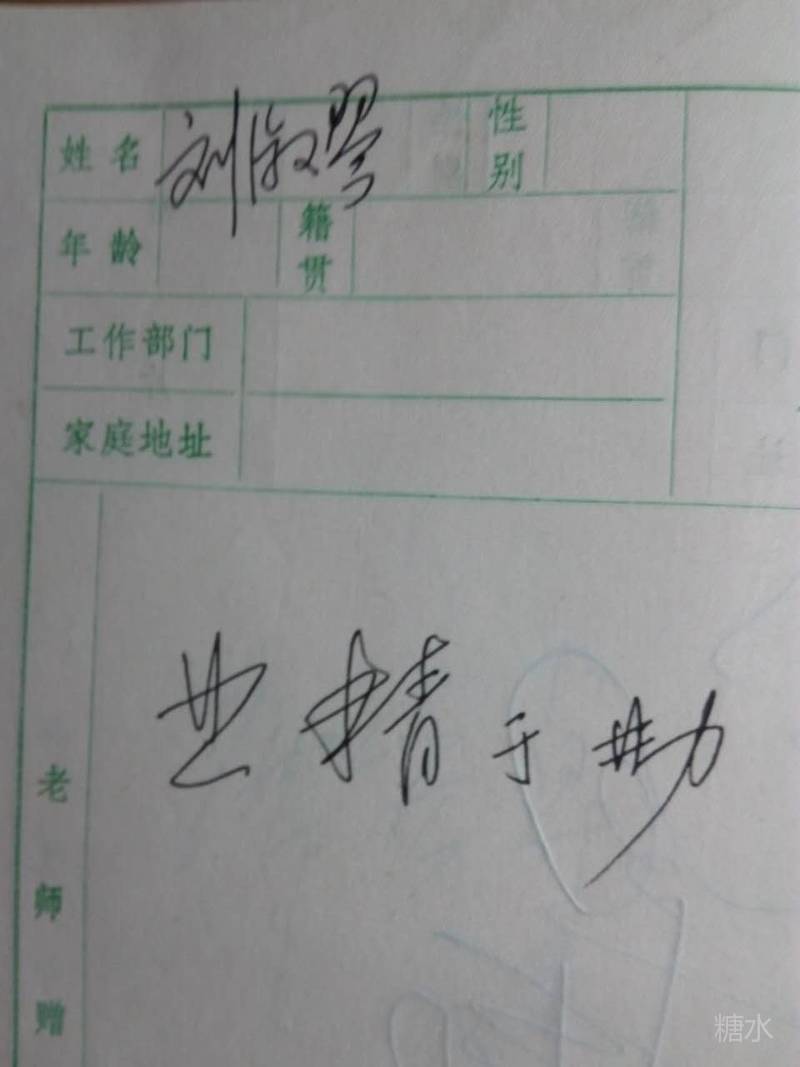 姓名 刘淑琴 性别
年龄 籍贯
工作部门
家庭地址
业精于勤
老师赠
糖水